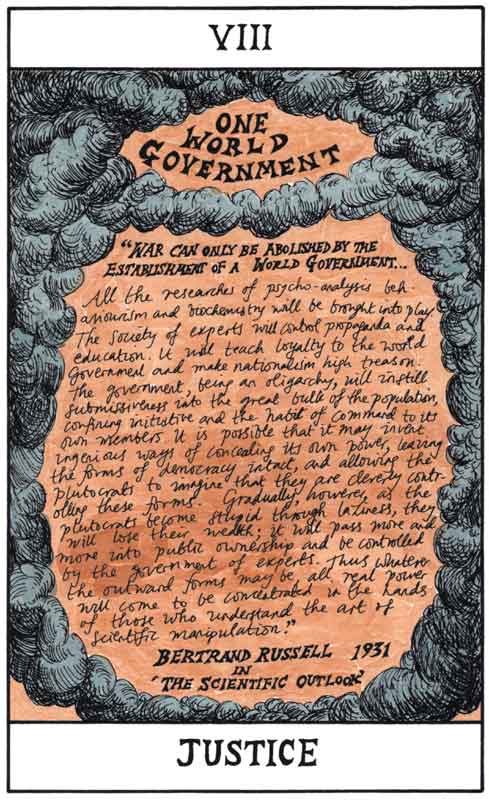 VIII
ONE
WORLD
GOVERNMENT
"WAR CAN ONLY BE ABOLISHED BY THE
ESTABLISHMENT OF A WORLD GOVERNMENT...
All the researches of psycho-analysis beh-
aviourism and biochemistry will be brought into play.
The society of experts will control propaganda and
education. It will teach loyalty to the world
Government and make nationalism high treason.
The government, being an oligarchy, will instill
submissiveness into the great bulk of the population,
confining initiative and the habit of command to its
own members. It is possible that it may invent
ingenious ways of concealing its own power, leaving
the forms of democracy intact, and allowing the
plutocrats to imagine that they are cleverly contr-
olling these forms. Gradually, however, as the
plutocrats become stupid through laziness, they
will lose their wealth; it will pass more and
more into public ownership and be controlled
by the government of experts. Thus whatever
the outward forms may be, all real power
will come to be concentrated in the hands
of those who understand the art of
scientific manipulation."
BERTRAND RUSSELL 1931
IN
'THE SCIENTIFIC OUTLOOK'
JUSTICE